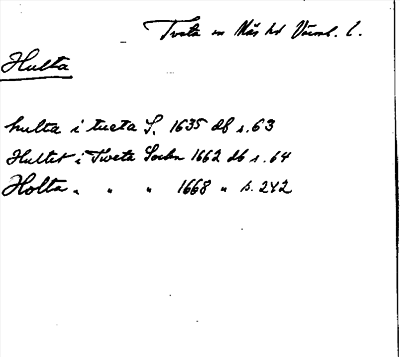 Tveta sn Näs hd Värml. l.
Hulta
hulta i tueta S. 1635 db s. 63
Hultet i Tweta Sochn 1662 db s. 64
Holta " " " 1668 " s. 242